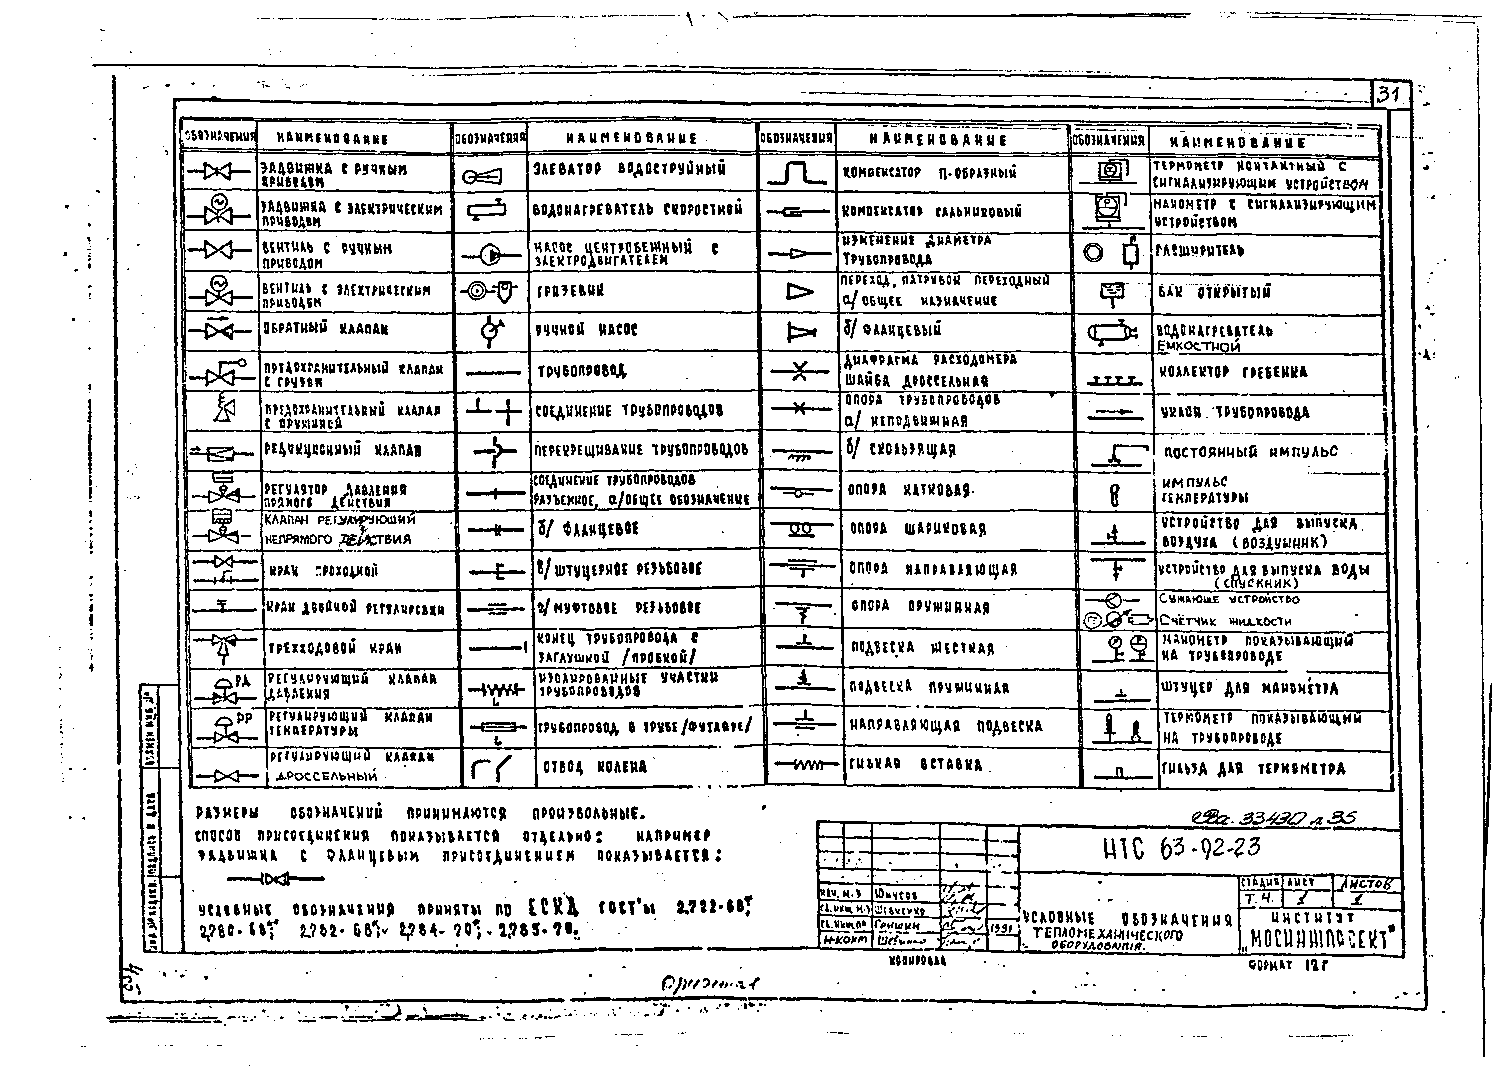 31
ОБОЗНАЧЕНИЯ НАИМЕНОВАНИЕ
ЗАДВИЖКА С РУЧНЫМ
ПРИВОДОМ
ЗАДВИЖКА С ЭЛЕКТРИЧЕСКИМ
ПРИВОДОМ
ВЕНТИЛЬ С РУЧНЫМ
ПРИВОДОМ
ВЕНТИЛЬ С ЭЛЕКТРИЧЕСКИМ
ПРИВОДОМ
ОБРАТНЫЙ КЛАПАН
ПРЕДОХРАНИТЕЛЬНЫЙ КЛАПАН
С ГРУЗОМ
ПРЕДОХРАНИТЕЛЬНЫЙ КЛАПАН
С ПРУЖИНОЙ
РЕДУКЦИОННЫЙ КЛАПАН
РЕГУЛЯТОР ДАВЛЕНИЯ
ПРЯМОГО ДЕЙСТВИЯ
КЛАПАН РЕГУЛИРУЮЩИЙ
НЕПРЯМОГО ДЕЙСТВИЯ
КРАН ПРОХОДНОЙ
КРАН ДВОЙНОЙ РЕГУЛИРОВКИ
ТРЕХХОДОВОЙ КРАН
РД
РЕГУЛИРУЮЩИЙ КЛАПАН
ДАВЛЕНИЯ
РР
РЕГУЛИРУЮЩИЙ КЛАПАН
ТЕМПЕРАТУРЫ
РЕГУЛИРУЮЩИЙ КЛАПАН
ДРОССЕЛЬНЫЙ
ОБОЗНАЧЕНИЯ НАИМЕНОВАНИЕ
ЭЛЕВАТОР ВОДОСТРУЙНЫЙ
ВОДОНАГРЕВАТЕЛЬ СКОРОСТНОЙ
НАСОС ЦЕНТРОБЕЖНЫЙ С
ЭЛЕКТРОДВИГАТЕЛЕМ
ГРЯЗЕВИК
РУЧНОЙ НАСОС
ТРУБОПРОВОД
СОЕДИНЕНИЕ ТРУБОПРОВОДОВ
ПЕРЕКРЕЩИВАНИЕ ТРУБОПРОВОДОВ
СОЕДИНЕНИЕ ТРУБОПРОВОДОВ
РАЗЪЕМНОЕ, а/ОБЩЕЕ ОБОЗНАЧЕНИЕ
б/ ФЛАНЦЕВОЕ
в/ ШТУЦЕРНОЕ РЕЗЬБОВОЕ
г/ МУФТОВОЕ РЕЗЬБОВОЕ
КОНЕЦ ТРУБОПРОВОДА С
ЗАГЛУШКОЙ /ПРОБКОЙ/
ИЗОЛИРОВАННЫЕ УЧАСТКИ
ТРУБОПРОВОДОВ
ТРУБОПРОВОД В ТРУБЕ/ФУТЛЯРЕ/
ОТВОД КОЛЕНА
ОБОЗНАЧЕНИЯ НАИМЕНОВАНИЕ
КОМПЕНСАТОР П-ОБРАЗНЫЙ
КОМПЕНСАТОР САЛЬНИКОВЫЙ
ИЗМЕНЕНИЕ ДИАМЕТРА
ТРУБОПРОВОДА
ПЕРЕХОД, ПАТРУБОК ПЕРЕХОДНЫЙ
а/ ОБЩЕЕ НАЗНАЧЕНИЕ
б/ ФЛАНЦЕВЫЙ
ДИАФРАГМА РАСХОДОМЕРА
ШАЙБА ДРОССЕЛЬНАЯ
ОПОРА ТРУБОПРОВОДОВ
а/ НЕПОДВИЖНАЯ
б/ СКОЛЬЗЯЩАЯ
ОПОРА КАТКОВАЯ
ОПОРА ШАРИКОВАЯ
ОПОРА НАПРАВЛЯЮЩАЯ
ОПОРА ПРУЖИННАЯ
ПОДВЕСКА ЖЕСТКАЯ
ПОДВЕСКА ПРУЖИННАЯ
НАПРАВЛЯЮЩАЯ ПОДВЕСКА
ГИБКАЯ ВСТАВКА
ОБОЗНАЧЕНИЯ НАИМЕНОВАНИЕ
ТЕРМОМЕТР КОНТАКТНЫЙ С
СИГНАЛИЗИРУЮЩИМ УСТРОЙСТВОМ
МАНОМЕТР С СИГНАЛИЗИРУЮЩИМ
УСТРОЙСТВОМ
РАСШИРИТЕЛЬ
БАК ОТКРЫТЫЙ
ВОДОНАГРЕВАТЕЛЬ
ЕМКОСТНОЙ
КОЛЛЕКТОР ГРЕБЕНКА
УКЛОН ТРУБОПРОВОДА
ПОСТОЯННЫЙ ИМПУЛЬС
ИМПУЛЬС
ТЕМПЕРАТУРЫ
УСТРОЙСТВО ДЛЯ ВЫПУСКА
ВОЗДУХА (ВОЗДУШНИК)
УСТРОЙСТВО ДЛЯ ВЫПУСКА ВОДЫ
(СПУСКНИК)
СУЖАЮЩЕЕ УСТРОЙСТВО
СЧЁТЧИК ЖИДКОСТИ
МАНОМЕТР ПОКАЗЫВАЮЩИЙ
НА ТРУБОПРОВОДЕ
ШТУЦЕР ДЛЯ МАНОМЕТРА
ТЕРМОМЕТР ПОКАЗЫВАЮЩИЙ
НА ТРУБОПРОВОДЕ
ГИЛЬЗА ДЛЯ ТЕРМОМЕТРА
РАЗМЕРЫ ОБОЗНАЧЕНИЙ ПРИНИМАЮТСЯ ПРОИЗВОЛЬНЫЕ.
СПОСОБ ПРИСОЕДИНЕНИЯ ПОКАЗЫВАЕТСЯ ОТДЕЛЬНО: НАПРИМЕР
ЗАДВИЖКА С ФЛАНЦЕВЫМ ПРИСОЕДИНЕНИЕМ ПОКАЗЫВАЕТСЯ:
УСЛОВНЫЕ ОБОЗНАЧЕНИЯ ПРИНЯТЫ ПО ЕСКД ГОСТ'Ы 2.722-68;
2.780-68; 2.782-68; 2.784-70; 2.785-70.
33430 л 35
НТС 63-92-23
СТАДИЯ ЛИСТ ЛИСТОВ
Т.Ч. 1 1
НАЧ. М.
Н.КОНТ
1991
УСЛОВНЫЕ ОБОЗНАЧЕНИЯ
ТЕПЛОМЕХАНИЧЕСКОГО
ОБОРУДОВАНИЯ.
ИНСТИТУТ
„МОСИНЖПРОЕКТ"
КОПИРОВАЛ
ФОРМАТ 12Г